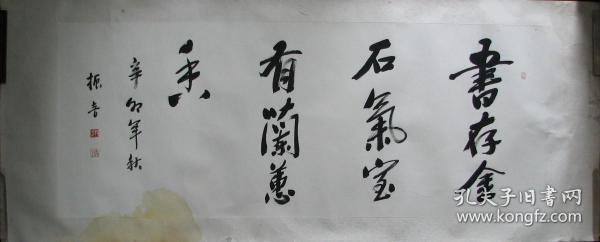 書存金
石氣室
有蘭蕙
香
辛卯年秋
振音
孔夫子旧书网
www.kongfz.com